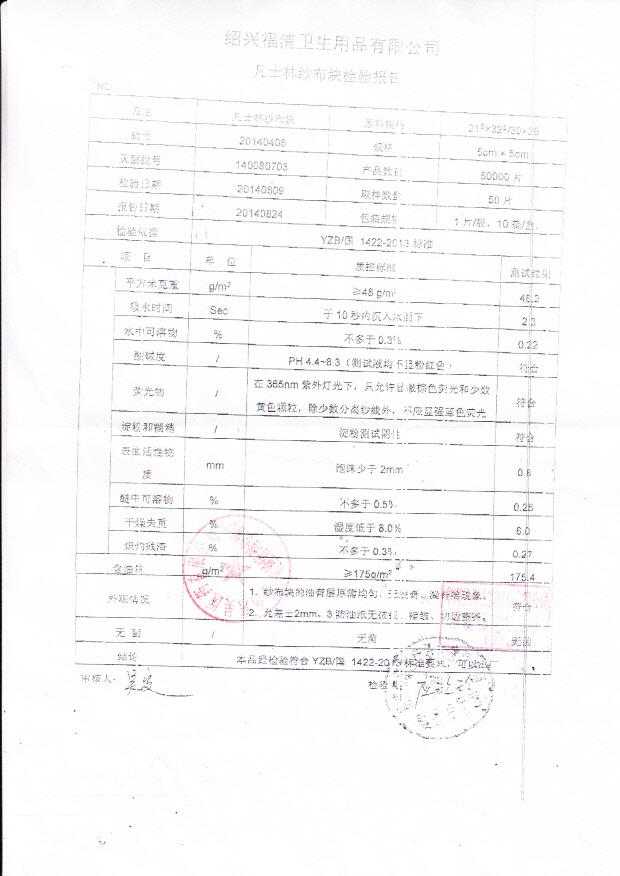 绍兴福清卫生用品有限公司
凡士林纱布块检验报告
NO
品名 凡士林纱布块 原料规格 21ˢ×32ˢ/30×28
批号 20140408 规格 5cm × 5cm
灭菌批号 140080703 产品数量 50000 片
检验日期 20140809 取样数量 50 片
报告日期 20140824 包装规格 1 片/袋、10 袋/盒
检验依据 YZB/国 1422-2013 标准
项 目 单 位 质控标准 测试结果
平方米克重 g/m² ≥48 g/m² 48.2
吸水时间 Sec 于 10 秒内沉入水面下 2.3
水中可溶物 % 不多于 0.3% 0.22
酸碱度 / PH 4.4~8.3（测试液均不呈粉红色） 符合
荧光物 / 在 365nm 紫外灯光下，只允许显微棕色荧光和少数
黄色颗粒，除少数分离纱线外，不应显强蓝色荧光 符合
淀粉和糊精 / 淀粉测试阴性 符合
表面活性物
质 mm 泡沫少于 2mm 0.8
醚中可溶物 % 不多于 0.5% 0.25
干燥失重 % 湿度低于 8.0% 6.0
炽灼残渣 % 不多于 0.3% 0.27
含油量 g/m² ≥175g/m² 175.4
外观情况 1、纱布块的油膏层厚薄均匀、 现象。 符合
2、允差±2mm。3 防油纸无破损、褶皱、切边整齐。
无菌 / 无菌 无菌
结论 本品经检验符合 YZB/国 1422-2013 标准要求，可以
审核人： 检验